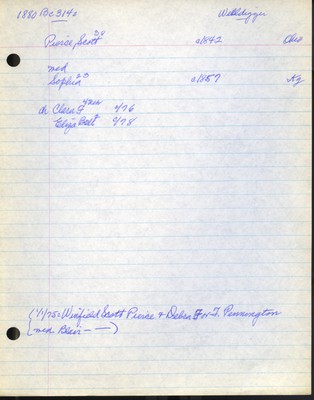 1880 Be 314a Welldigger
Pierce, Scott 38 a1842 Ohio
med
Sophia 23 a1857
ch Clara F 4
Eliza Bell 2/78
(4/1/75 = Winfield Scott Pierce & Debra F or T. Pennington
(med Blair — —)